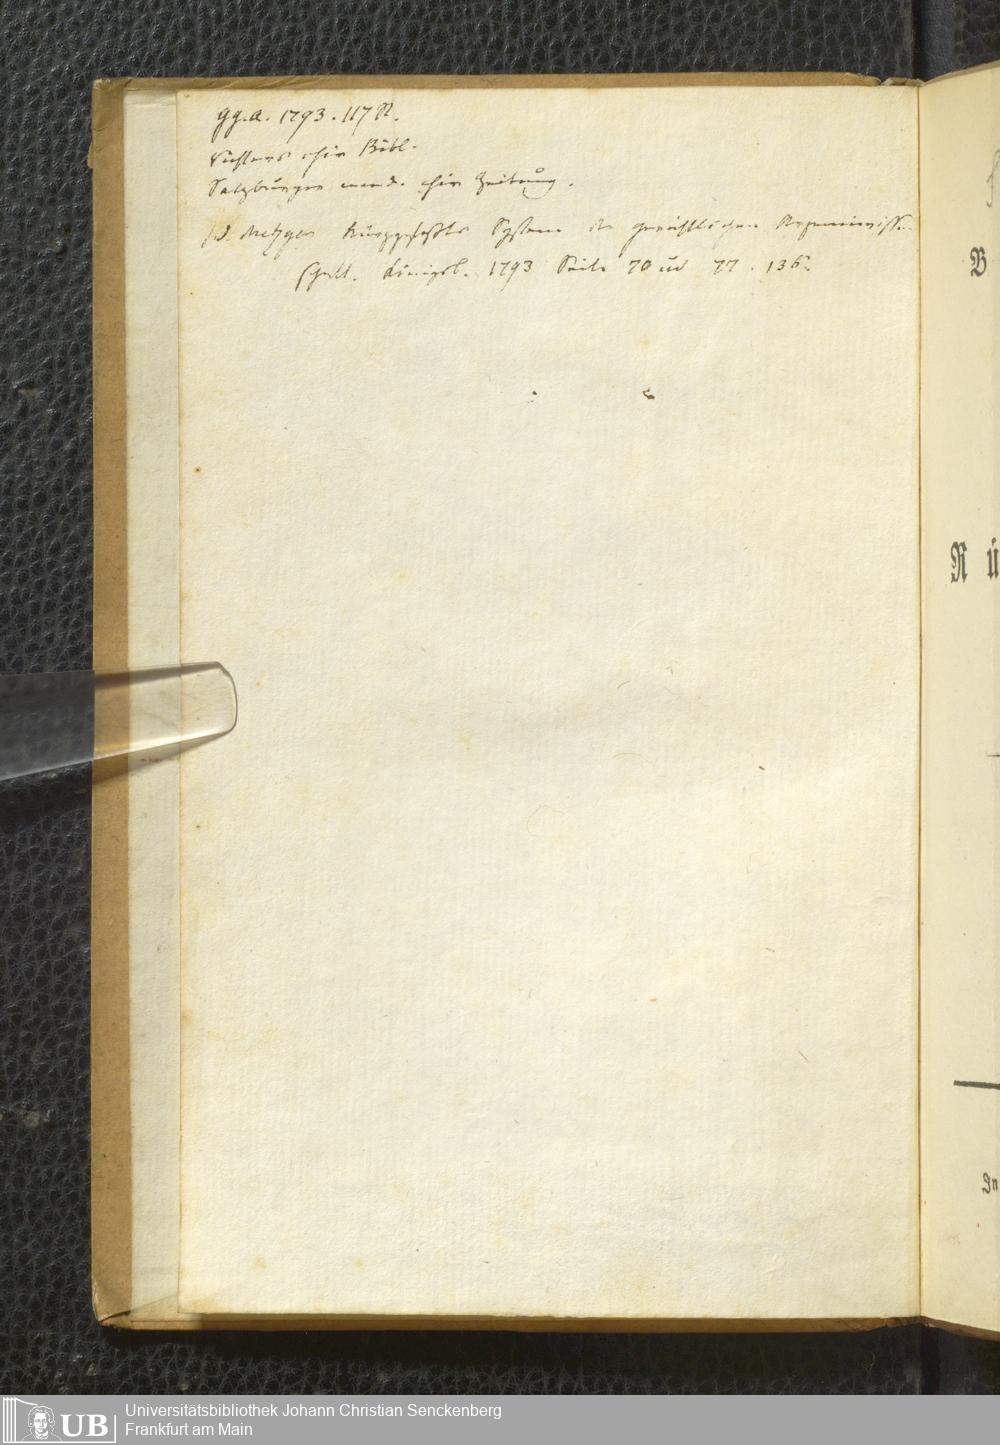 gg. a. 1793. 117 St.
Richters chir Bibl.
Salzburger med. chir Zeitung.
Metzger Kurzgefaßtes System der gerichtlichen Arzneiwissen
schaft. Königsb. 1793 Seite 70 und 77. 136.
B
R Ü
In
UB
Universitätsbibliothek Johann Christian Senckenberg
Frankfurt am Main